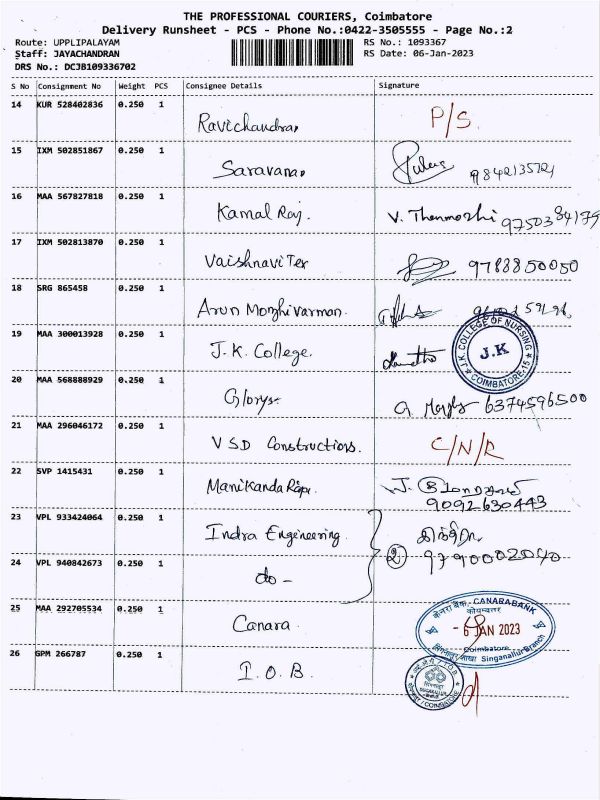 THE PROFESSIONAL COURIERS, Coimbatore
Delivery Runsheet - PCS - Phone No.:0422-3505555 - Page No.:2
Route: UPPLIPALAYAM RS No.: 1093367
Staff: JAYACHANDRAN RS Date: 06-Jan-2023
DRS No.: DCJB109336702
S No Consignment No Weight PCS Consignee Details Signature
14 KUR 528402836 0.250 1 Ravichandran P/S.
15 IXM 502851867 0.250 1 Saravanan
16 MAA 567827818 0.250 1 Kamal Raj. V. Thenmozhi 9750384175
17 IXM 502813870 0.250 1 Vaishnavi Tex 9788850050
18 SRG 865458 0.250 1 Arun Mozhivarman.
19 MAA 300013928 0.250 1 J.K. College. J.K. COLLEGE OF NURSING J.K COIMBATORE-15
20 MAA 568888929 0.250 1 Glorys 6374596500
21 MAA 296046172 0.250 1 VSD Constructions. C/N/R
22 SVP 1415431 0.250 1 Manikanda Raja.
9092630443
23 VPL 933424064 0.250 1 Indra Engineering
② 9790002040
24 VPL 940842673 0.250 1 do -
25 MAA 292705534 0.250 1 Canara
केनरा बैंक CANARA BANK
कोयम्बत्तूर
- 6 JAN 2023
Coimbatore
Singanallur Branch
26 GPM 266787 0.250 1 I.O.B.